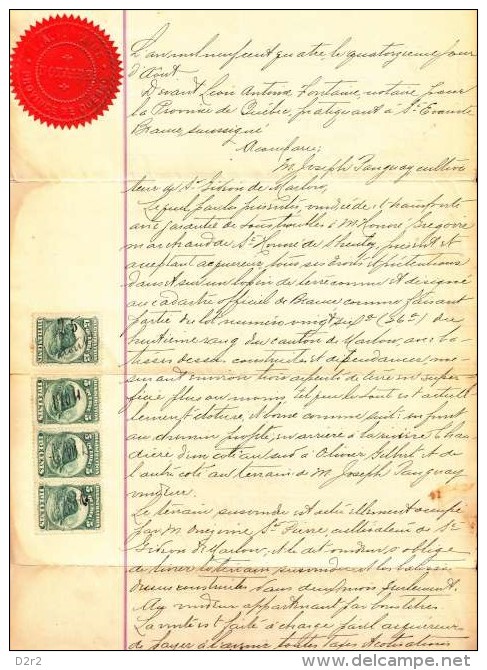 L'an mil neuf cent quatre le quatorzième jour
d'Août.
Devant Léon Antoine Fontaine, notaire pour
la Province de Québec, pratiquant à St Evariste
Beauce, soussigné
A comparu:
M. Joseph Tanguay cultiva
teur de St Gédéon de Marlow,
Lequel par les présentes, vend, cède et transporte
avec garantie de tous troubles à M. Honoré Grégoire
marchand de St Honoré de Shenley, présent et
acceptant acquéreur, tous ses droits et prétentions
dans et sur un lopin de terre connu et désigné
au cadastre officiel de Beauce comme faisant
partie du lot numéro vingt six (26e) du
huitième rang du canton de Marlow, avec ba-
tisses dessus construites et dépendances, me-
surant environ trois arpents de terre en super-
ficie plus ou moins tel que le tout est actuelle
ment cloturé, et borné comme suit: en front
au chemin, en arrière à la rivière Chau
dière d'un coté au sud à Olivier et de
l'autre coté au terrain de M. Joseph Tanguay
vendeur.
Le terrain susvendu est actuellement occupé
par M. Onézime St Pierre cultivateur de St
Gédéon de Marlow, et le dit vendeur s'oblige
de livrer le terrain susvendu et les batisses
dessus construites dans deux mois seulement.
Au vendeur appartenant par bons titres
La vente est faite à charge par l'acquéreur
de payer à l'avenir toutes taxes et cotisations
D2r2
delcampe.net